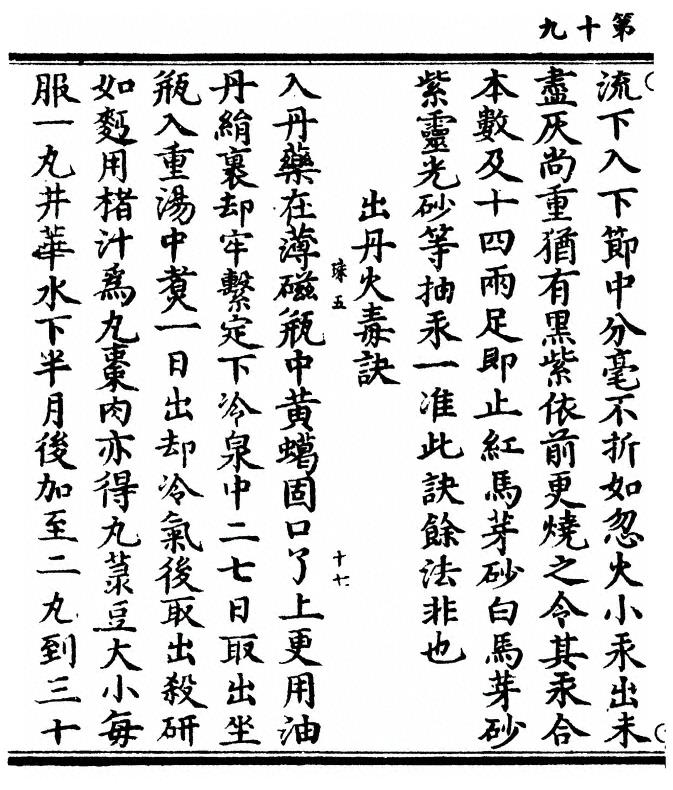 第十九
流下入下節中分毫不折如忽火小汞出未
盡灰尚重猶有黑紫依前更燒之令其汞合
本數及十四兩足即止紅馬芽砂白馬芽砂
紫靈光砂等抽汞一准此訣餘法非也
出丹火毒訣
璨五
十七
入丹藥在薄磁瓶中黄蠟固口了上更用油
丹絹裹却牢繫定下冷泉中二七日取出坐
瓶入重湯中煑一日出却冷氣後取出殺研
如麪用楮汁爲丸棗肉亦得丸菉豆大小每
服一丸井華水下半月後加至二丸到三十